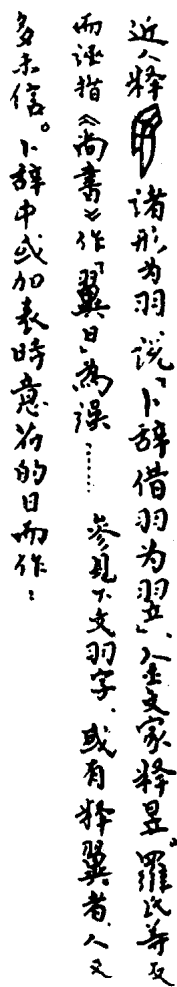 近人释诸形为羽，说「卜辞借羽为翌」，金文家释昱。羅氏等反
而誣指《尚書》作「翼日」為误……参見下文羽字，或有释翼者，人又
多未信。卜辞中或加表時意符的日而作：